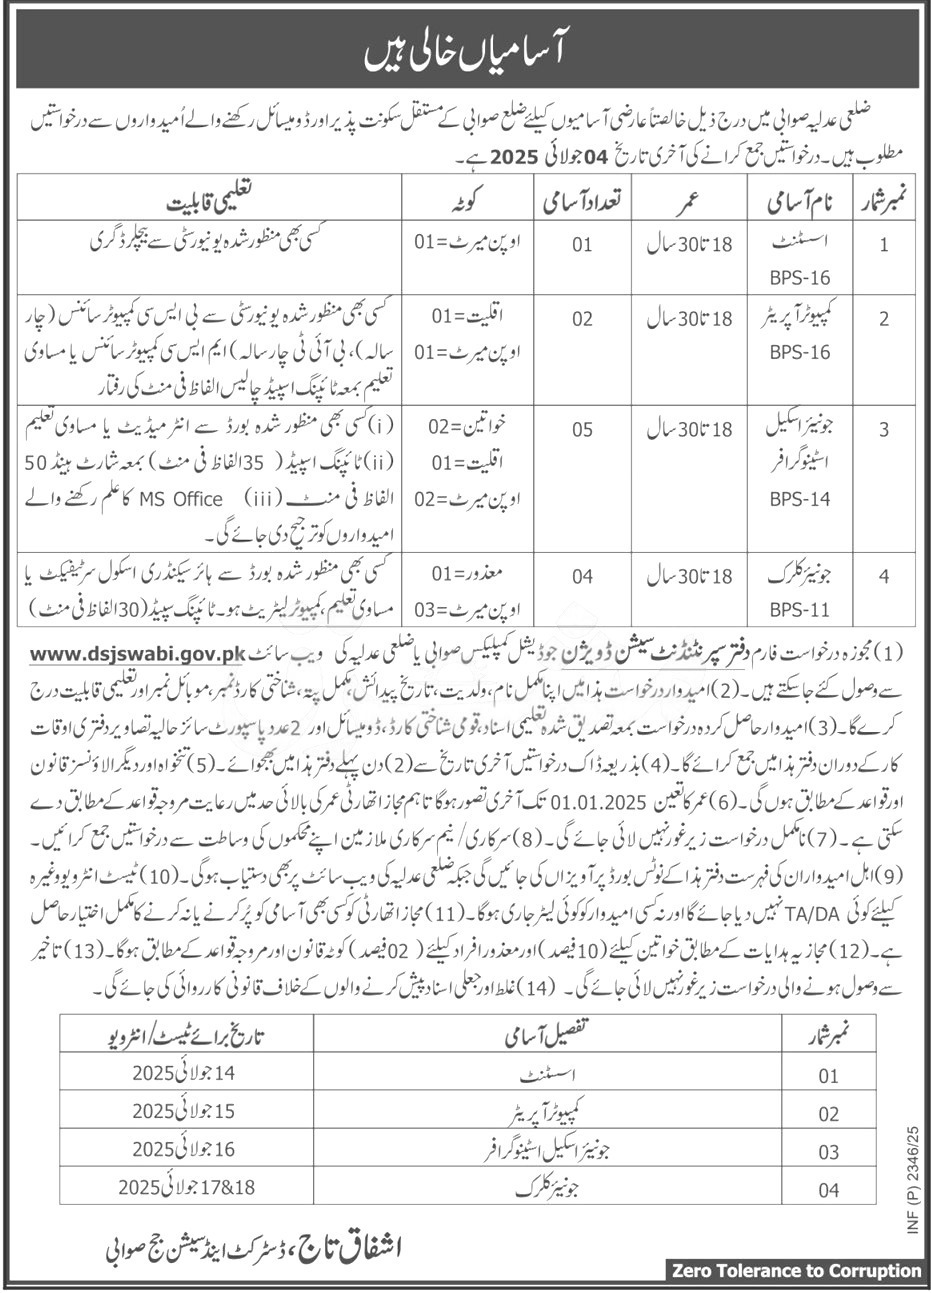 آسامیاں خالی ہیں
ضلعی عدلیہ صوابی میں درج ذیل خالصتاً عارضی آسامیوں کیلئے ضلع صوابی کے مستقل سکونت پذیر اور ڈومیسائل رکھنے والے اُمیدواروں سے درخواستیں
مطلوب ہیں۔ درخواستیں جمع کرانے کی آخری تاریخ 04 جولائی 2025 ہے۔
نمبر شمار نام آسامی عمر تعداد آسامی کوٹہ تعلیمی قابلیت
1 اسسٹنٹ 18 تا 30 سال 01 اوپن میرٹ=01 کسی بھی منظور شدہ یونیورسٹی سے بیچلر ڈگری
BPS-16
2 کمپیوٹر آپریٹر 18 تا 30 سال 02 اقلیت=01 کسی بھی منظور شدہ یونیورسٹی سے بی ایس سی کمپیوٹر سائنس (چار
BPS-16 اوپن میرٹ=01 سالہ)، بی آئی ٹی چار سالہ) ایم ایس سی کمپیوٹر سائنس یا مساوی
تعلیم بمعہ ٹائپنگ اسپیڈ چالیس الفاظ فی منٹ کی رفتار
3 جونیئر اسکیل 18 تا 30 سال 05 خواتین=02 (i) کسی بھی منظور شدہ بورڈ سے انٹرمیڈیٹ یا مساوی تعلیم
اسٹینوگرافر اقلیت=01 (ii) ٹائپنگ اسپیڈ (35 الفاظ فی منٹ) بمعہ شارٹ ہینڈ 50
BPS-14 اوپن میرٹ=02 الفاظ فی منٹ (iii) MS Office کا علم رکھنے والے
امیدواروں کو ترجیح دی جائے گی۔
4 جونیئر کلرک 18 تا 30 سال 04 معذور=01 کسی بھی منظور شدہ بورڈ سے ہائر سیکنڈری اسکول سرٹیفیکٹ یا
BPS-11 اوپن میرٹ=03 مساوی تعلیم، کمپیوٹر لیٹریٹ ہو۔ ٹائپنگ سپیڈ (30 الفاظ فی منٹ)
(1) مجوزہ درخواست فارم دفتر سپرنٹنڈنٹ سیشن ڈویژن جوڈیشل کمپلیکس صوابی یا ضلعی عدلیہ کی ویب سائٹ www.dsjswabi.gov.pk
سے وصول کئے جا سکتے ہیں۔ (2) امیدوار درخواست ہذا میں اپنا مکمل نام، ولدیت، تاریخ پیدائش، مکمل پتہ، شناختی کارڈ نمبر، موبائل نمبر اور تعلیمی قابلیت درج
کرے گا۔ (3) امیدوار حاصل کردہ درخواست بمعہ تصدیق شدہ تعلیمی اسناد، قومی شناختی کارڈ، ڈومیسائل اور 2 عدد پاسپورٹ سائز حالیہ تصاویر دفتری اوقات
کار کے دوران دفتر ہذا میں جمع کرائے گا۔ (4) بذریعہ ڈاک درخواستیں آخری تاریخ سے (2) دن پہلے دفتر ہذا میں بھجوائے۔ (5) تنخواہ اور دیگر الاؤنسز قانون
اور قواعد کے مطابق ہوں گی۔ (6) عمر کا تعین 01.01.2025 تک آخری تصور ہوگا تاہم مجاز اتھارٹی عمر کی بالائی حد میں رعایت مروجہ قواعد کے مطابق دے
سکتی ہے۔ (7) نامکمل درخواست زیر غور نہیں لائی جائے گی۔ (8) سرکاری/نیم سرکاری ملازمین اپنے محکموں کی وساطت سے درخواستیں جمع کرائیں۔
(9) اہل امیدواران کی فہرست دفتر ہذا کے نوٹس بورڈ پر آویزاں کی جائیں گی جبکہ ضلعی عدلیہ کی ویب سائٹ پر بھی دستیاب ہوگی۔ (10) ٹیسٹ انٹرویو وغیرہ
کیلئے کوئی TA/DA نہیں دیا جائے گا اور نہ کسی امیدوار کو کوئی لیٹر جاری ہوگا۔ (11) مجاز اتھارٹی کو کسی بھی آسامی کو پُر کرنے یا نہ کرنے کا مکمل اختیار حاصل
ہے۔ (12) مجازیہ ہدایات کے مطابق خواتین کیلئے (10 فیصد) اور معذور افراد کیلئے (02 فیصد) کوٹہ قانون اور مروجہ قواعد کے مطابق ہوگا۔ (13) تاخیر
سے وصول ہونے والی درخواست زیر غور نہیں لائی جائے گی۔ (14) غلط اور جعلی اسناد پیش کرنے والوں کے خلاف قانونی کارروائی کی جائے گی۔
نمبر شمار تفصیل آسامی تاریخ برائے ٹیسٹ/انٹرویو
01 اسسٹنٹ 14 جولائی 2025
02 کمپیوٹر آپریٹر 15 جولائی 2025
03 جونیئر اسکیل اسٹینوگرافر 16 جولائی 2025
04 جونیئر کلرک 17&18 جولائی 2025
INF (P) 2346/25
اشفاق تاج، ڈسٹرکٹ اینڈ سیشن جج صوابی
Zero Tolerance to Corruption